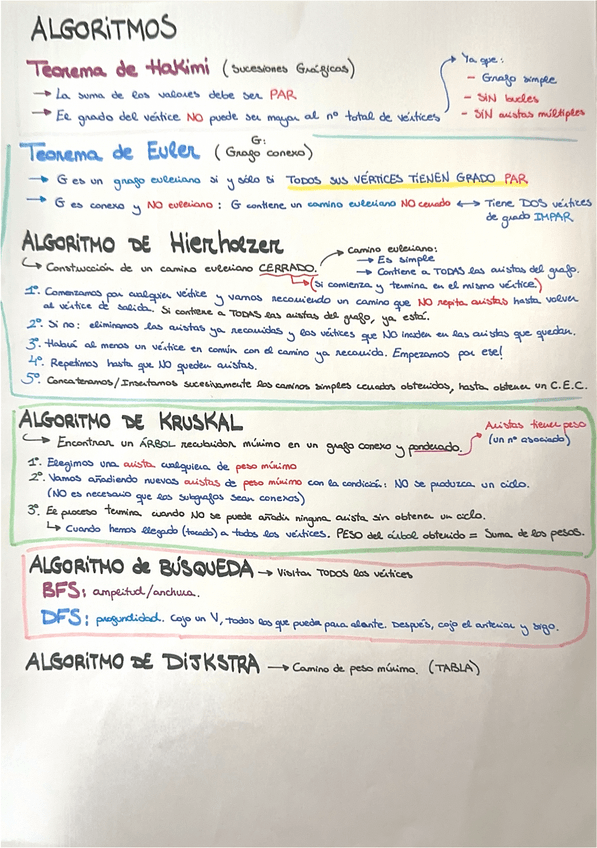 ALGORITMOS
Teorema de Hakimi (Sucesiones Gráficas)
→ La suma de los valores debe ser PAR
→ El grado del vértice NO puede ser mayor al nº total de vértices
→ Ya que:
- Grafo simple
- SIN bucles
- SIN aristas múltiples
Teorema de Euler (Grafo conexo)
G:
→ G es un grafo euleriano si y sólo si TODOS SUS VÉRTICES TIENEN GRADO PAR
→ G es conexo y NO euleriano: G contiene un camino euleriano NO cerrado ↔ Tiene DOS vértices
de grado IMPAR
ALGORITMO DE Hierholzer
↳ Construcción de un camino euleriano CERRADO.
→ Camino euleriano:
→ Es simple
→ Contiene a TODAS las aristas del grafo.
→ (si comienza y termina en el mismo vértice.)
1º. Comenzamos por cualquier vértice y vamos recorriendo un camino que NO repita aristas hasta volver
al vértice de salida. Si contiene a TODAS las aristas del grafo, ya está.
2º. Si no: eliminamos las aristas ya recorridas y los vértices que NO inciden en las aristas que quedan.
3º. Habrá al menos un vértice en común con el camino ya recorrido. Empezamos por ese!
4º. Repetimos hasta que NO queden aristas.
5º. Concatenamos/Insertamos sucesivamente los caminos simples cerrados obtenidos, hasta obtener un C.E.C.
ALGORITMO DE KRUSKAL
↳ Encontrar un ÁRBOL recubridor mínimo en un grafo conexo y ponderado.
→ Aristas tienen peso
(un nº asociado)
1º. Elegimos una arista cualquiera de peso mínimo
2º. Vamos añadiendo nuevas aristas de peso mínimo con la condición: NO se produzca un ciclo.
(NO es necesario que los subgrafos sean conexos)
3º. El proceso termina cuando NO se puede añadir ninguna arista sin obtener un ciclo.
↳ Cuando hemos llegado (tocado) a todos los vértices. PESO del árbol obtenido = Suma de los pesos.
ALGORITMO de BÚSQUEDA → Visitar TODOS los vértices
BFS: amplitud/anchura.
DFS: profundidad. Cojo un V, todos los que pueda para alante. Después, cojo el anterior y sigo.
ALGORITMO DE DIJKSTRA → Camino de peso mínimo. (TABLA)